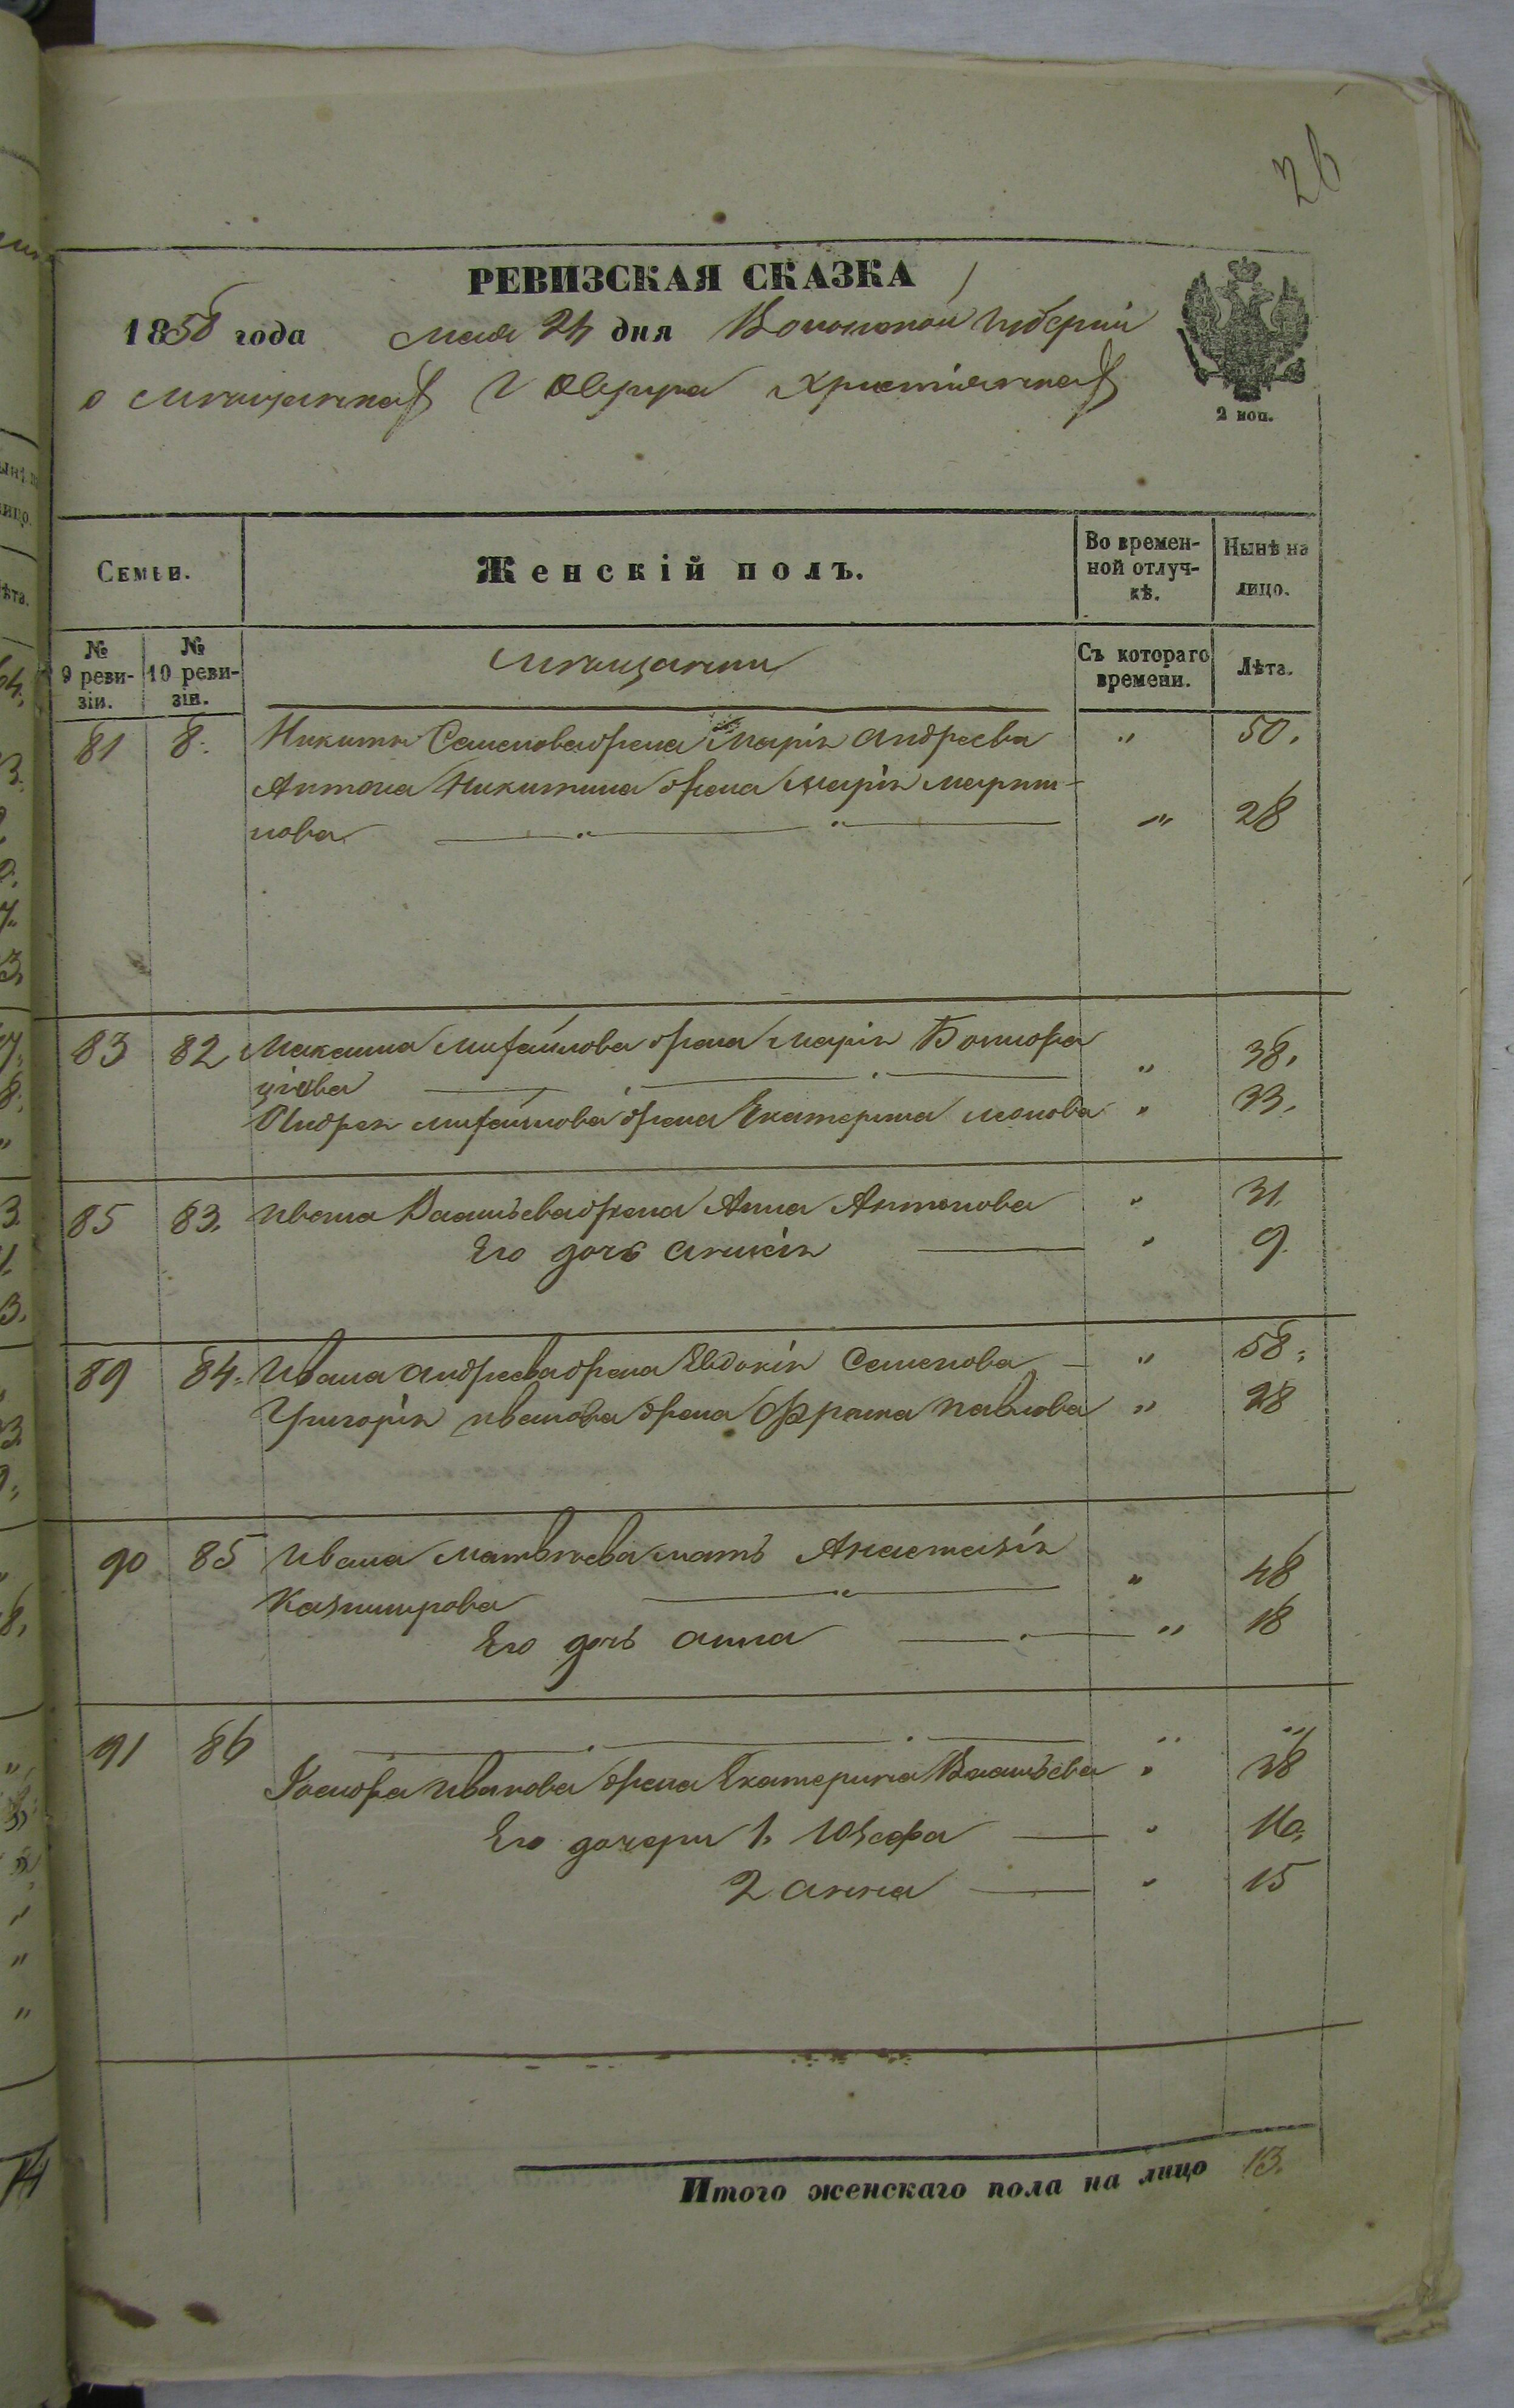 26
РЕВИЗСКАЯ СКАЗКА
1858 года мая 24 дня Волынской Губерніи
о мѣщанкахъ г Овруча христіянкахъ
2 коп.
Семьи.
Женскій полъ.
Во времен-
ной отлуч-
кѣ.
Нынѣ на
лицо.
№
9 реви-
зіи.
№
10 реви-
зіи.
мѣщанки
Съ котораго
времени.
Лѣта.
81 8. Никиты Семенова жена Марія Андреева " 50.
Антона Никитина жена Марія Марти-
нова " 28
83 82 Максима Михайлова жена Марія
" 38.
Андрея Михайлова жена Екатерина " 33.
85 83. Ивана Васильева жена Анна Антонова " 31.
Его дочь " 9.
89 84. Ивана Андреева жена Евдокія Семенова " 58.
Григорія Иванова жена Павлова " 28
90 85 Ивана Матвѣева мать Анастазія
Казимирова " 48
Его дочь Анна " 18
91 86 " "
Іосифа Иванова жена Екатерина Васильева " 38
Его дочери 1. Юзефа " 16.
2 Анна " 15
Итого женскаго пола на лицо 13.